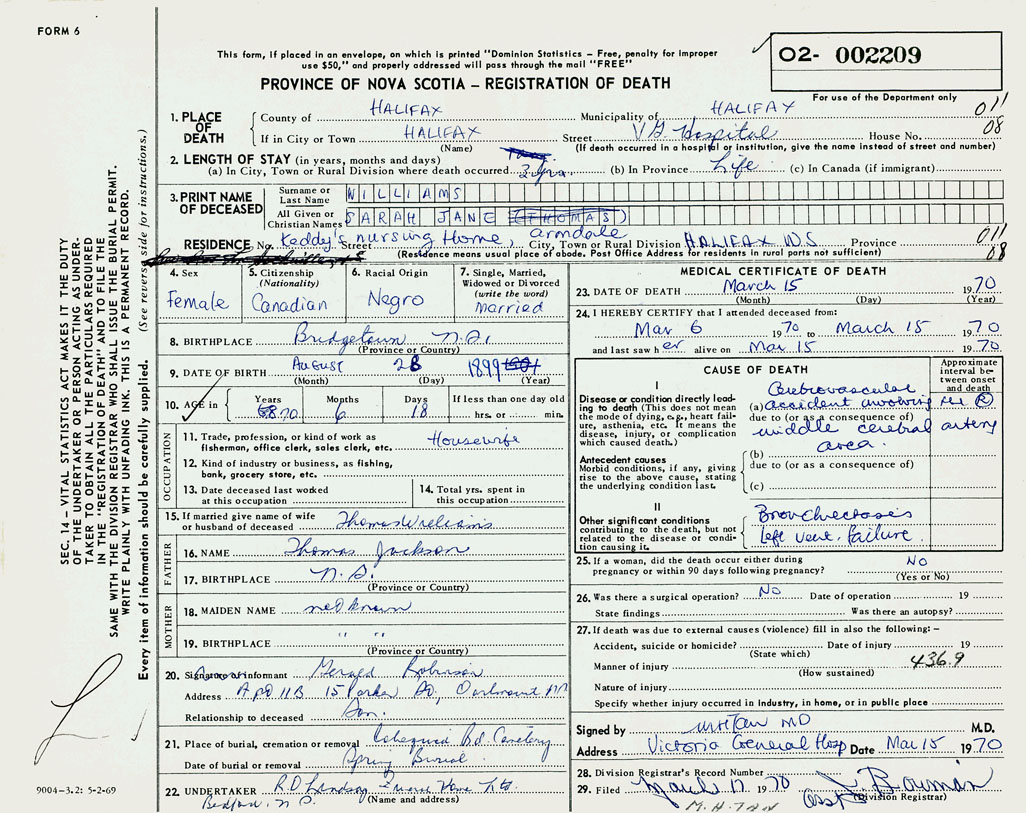 FORM 6
This form, if placed in an envelope, on which is printed "Dominion Statistics – Free, penalty for improper
use $50," and properly addressed will pass through the mail "FREE"
O2- 002209
PROVINCE OF NOVA SCOTIA – REGISTRATION OF DEATH
For use of the Department only
011
08
1. PLACE OF DEATH
County of HALIFAX Municipality of HALIFAX
If in City or Town HALIFAX Street V G Hospital House No.
(Name) (If death occurred in a hospital or institution, give the name instead of street and number)
2. LENGTH OF STAY (in years, months and days)
(a) In City, Town or Rural Division where death occurred (b) In Province Life (c) In Canada (if immigrant)
3. PRINT NAME OF DECEASED
Surname or Last Name WILLIAMS
All Given or Christian Names SARAH JANE (THOMAS)
RESIDENCE No. Keddy's nursing Home, Armdale Street City, Town or Rural Division HALIFAX N.S Province
011
08
(Residence means usual place of abode. Post Office Address for residents in rural parts not sufficient)
4. Sex
Female
5. Citizenship
(Nationality)
Canadian
6. Racial Origin
Negro
7. Single, Married,
Widowed or Divorced
(write the word)
married
8. BIRTHPLACE Bridgetown N.S.
(Province or Country)
9. DATE OF BIRTH August 28 1899
(Month) (Day) (Year)
10. AGE in
Years Months Days If less than one day old
70 6 18 hrs. or min.
OCCUPATION
11. Trade, profession, or kind of work as
fisherman, office clerk, sales clerk, etc. Housewife
12. Kind of industry or business, as fishing,
bank, grocery store, etc.
13. Date deceased last worked
at this occupation
14. Total yrs. spent in
this occupation
15. If married give name of wife
or husband of deceased Thomas Williams
FATHER
16. NAME Thomas Jackson
17. BIRTHPLACE N.S.
(Province or Country)
MOTHER
18. MAIDEN NAME not known
19. BIRTHPLACE " "
(Province or Country)
20. Signature of informant Robinson
Address Apt 11B 15 Parker
Relationship to deceased Son.
21. Place of burial, cremation or removal Rd. Cemetery
Date of burial or removal Spring Burial
22. UNDERTAKER
(Name and address)
Bedford, N.S.
MEDICAL CERTIFICATE OF DEATH
23. DATE OF DEATH March 15 1970
(Month) (Day) (Year)
24. I HEREBY CERTIFY that I attended deceased from:
Mar 6 1970 to March 15 1970
and last saw her alive on Mar 15 1970
CAUSE OF DEATH
Approximate
interval be-
tween onset
and death
I
Disease or condition directly lead-
ing to death (This does not mean
the mode of dying, e.g., heart fail-
ure, asthenia, etc. It means the
disease, injury, or complication
which caused death.)
Cerebrovascular
(a) accident involving the R
due to (or as a consequence of)
middle cerebral artery
area.
Antecedent causes
Morbid conditions, if any, giving
rise to the above cause, stating
the underlying condition last.
(b)
due to (or as a consequence of)
(c)
II
Other significant conditions
contributing to the death, but not
related to the disease or condi-
tion causing it.
Bronchiectasis
Left vent. failure.
25. If a woman, did the death occur either during
pregnancy or within 90 days following pregnancy? No
(Yes or No)
26. Was there a surgical operation? No Date of operation 19
State findings Was there an autopsy?
27. If death was due to external causes (violence) fill in also the following: –
Accident, suicide or homicide? Date of injury 19
(State which)
436.9
Manner of injury
(How sustained)
Nature of injury
Specify whether injury occurred in Industry, in home, or in public place
Signed by MH Tan MD M.D.
Address Victoria General Hosp Date Mar 15 1970
28. Division Registrar's Record Number
29. Filed March 17 1970
(Division Registrar)
M. H. TAN
SEC. 14 – VITAL STATISTICS ACT MAKES IT THE DUTY
OF THE UNDERTAKER OR PERSON ACTING AS UNDER-
TAKER TO OBTAIN ALL THE PARTICULARS REQUIRED
IN THE "REGISTRATION OF DEATH" AND TO FILE THE
SAME WITH THE DIVISION REGISTRAR WHO SHALL ISSUE THE BURIAL PERMIT.
WRITE PLAINLY WITH UNFADING INK. THIS IS A PERMANENT RECORD.
Every item of information should be carefully supplied. (See reverse side for instructions.)
9004–3.2: 5-2-69